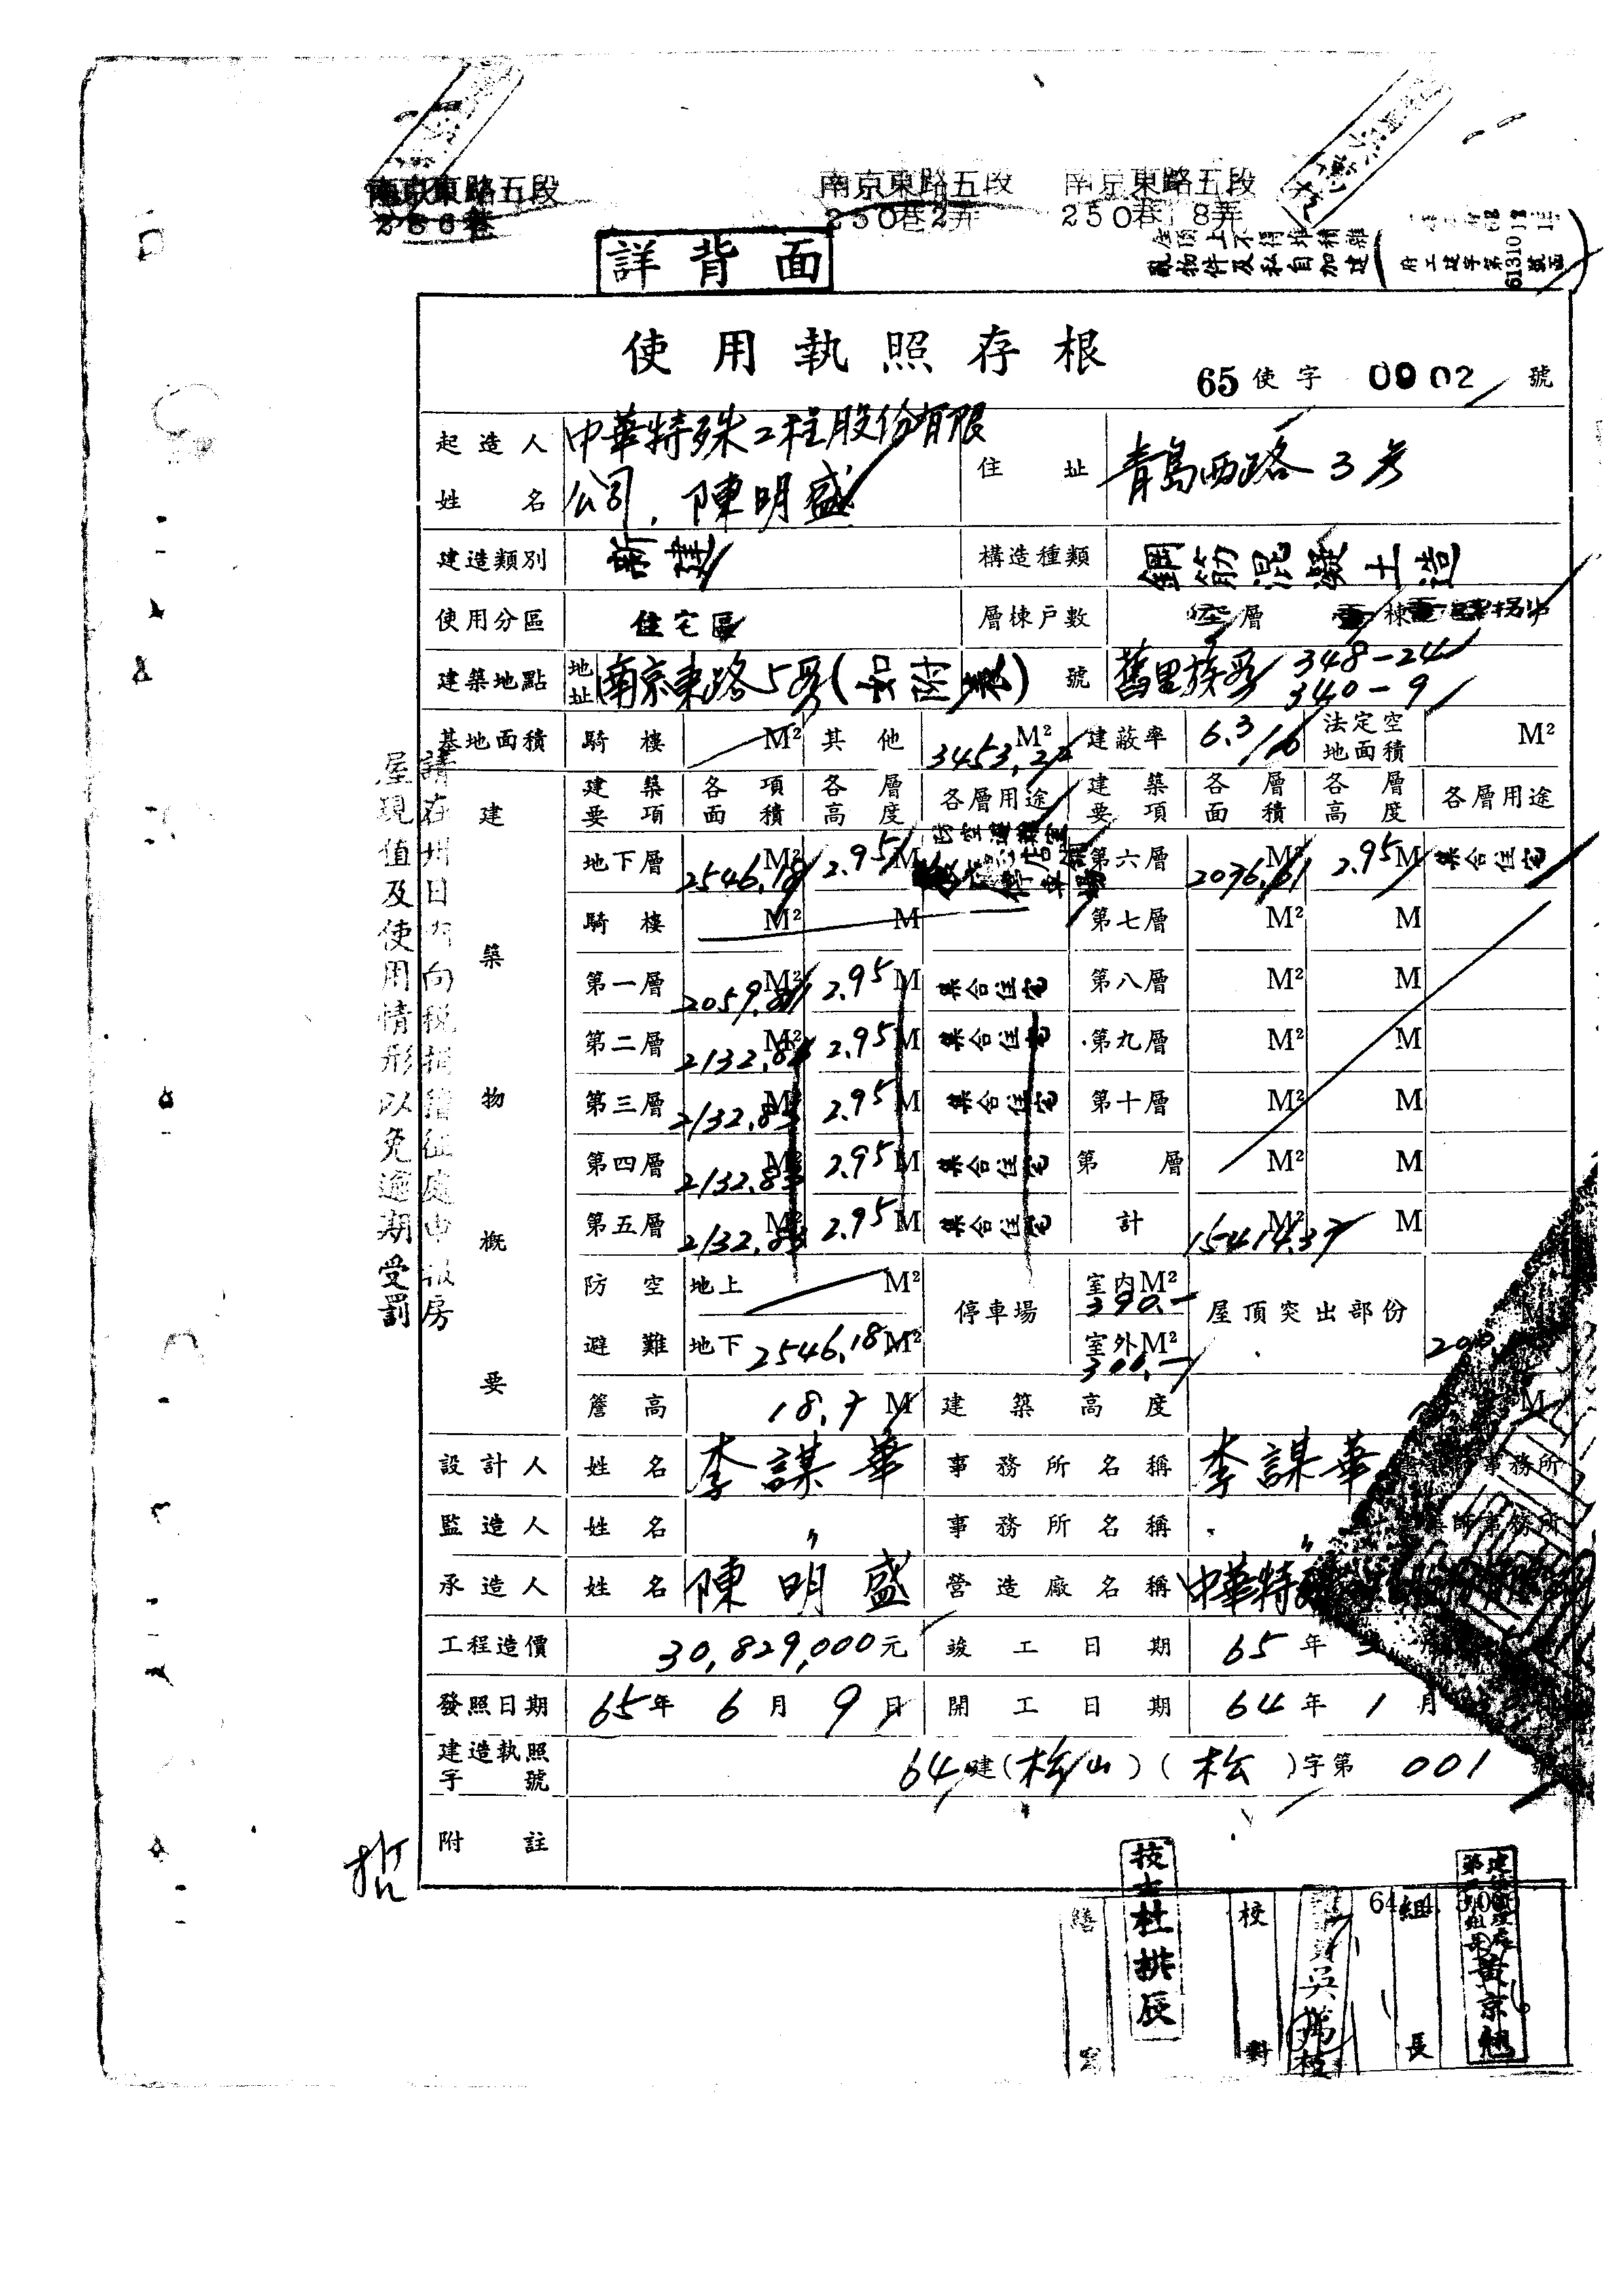 南京東路五段
南京東路五段
250巷2弄
南京東路五段
250巷18弄
屋頂上不得堆積雜
亂物件及私自加建
詳背面
使用執照存根
65使字 0902 號
起造人姓名 中華特殊工程股份有限公司．陳明盛 住址 青島西路3号
建造類別 新建 構造種類 鋼筋混凝土造
使用分區 住宅區 層棟戶數 層 棟
建築地點 地址 南京東路5段(如附表) 號 舊里族段 348-24 340-9
基地面積 騎樓 M² 其他 3453.22 M² 建蔽率 6.3/10 法定空地面積 M²
建築物概要
建築要項 各項面積 各層高度 各層用途 建築要項 各層面積 各層高度 各層用途
地下層 2546.18 M² 2.95 M 防空避難室 停車場 第六層 2036.61 M² 2.95 M 集合住宅
騎樓 M² M 第七層 M² M
第一層 2059.81 M² 2.95 M 集合住宅 第八層 M² M
第二層 2132.83 M² 2.95 M 集合住宅 第九層 M² M
第三層 2132.83 M² 2.95 M 集合住宅 第十層 M² M
第四層 2132.83 M² 2.95 M 集合住宅 第 層 M² M
第五層 2132.83 M² 2.95 M 集合住宅 計 15414.37 M² M
防空避難 地上 M² 停車場 室內M² 390.- 屋頂突出部份
地下 2546.18 M² 室外M² 300.-
簷高 18.7 M 建築高度 M
設計人 姓名 李謀華 事務所名稱 李謀華 事務所
監造人 姓名 〃 事務所名稱 〃
承造人 姓名 陳明盛 營造廠名稱 中華特
工程造價 30,829,000元 竣工日期 65年
發照日期 65年6月9日 開工日期 64年1月
建造執照字號 64建(松山)(松)字第 001 號
附註
請在卅日內向稅捐稽征處申報房
屋現值及使用情形以免逾期受罰
繕寫
校對
組長